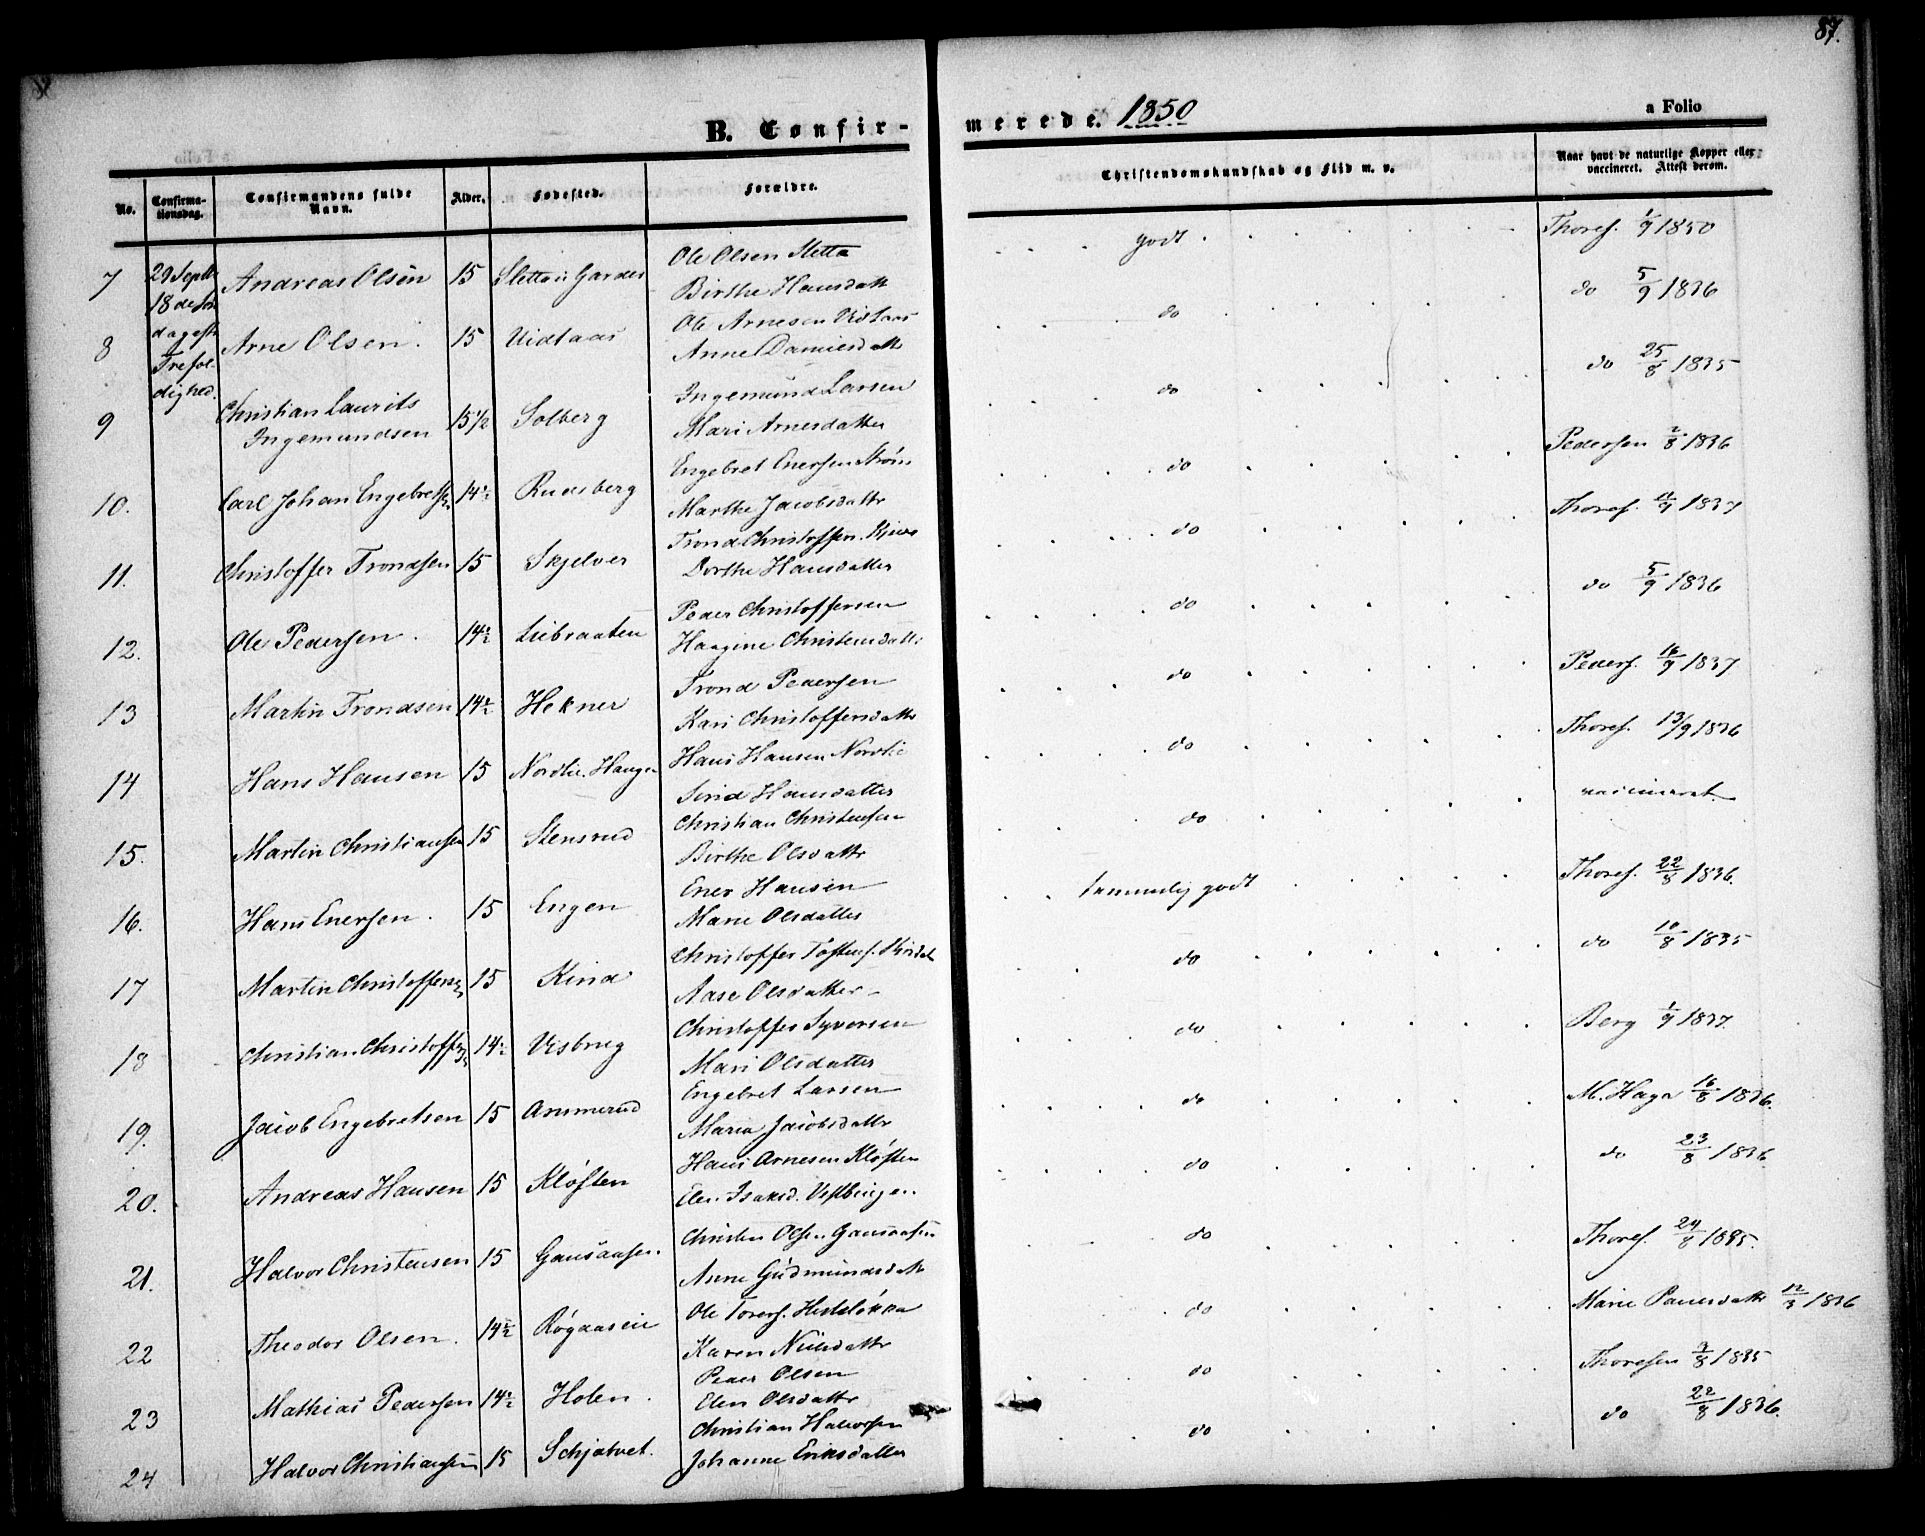 87.
B. Confir-
merede. 1850
a Folio
No.
Confirma-
tionsdag.
Confirmandens fulde
Navn.
Alder.
Fødested.
Forældre.
Christendomskundskab og Flid m. v.
Naar havt de naturlige Kopper eller
vaccineret. Attest derom.
29 Septb.
18 de Søn
dag efter
Trefol-
dighed.
7 Andreas Olsen 15 Sletta i Garder Ole Olsen Sletta
Birthe Hansdatt godt Thoref. 1/9 1850
8 Arne Olsen. 15 Vidlaas Ole Arnesen Vidlaas
Anne Danielsdatt do do 5/9 1836
9 Christian Laurits
Ingemundsen 15 1/2 Solberg Ingemund Larsen
Mari Arnesdatter do do 25/8 1835
10. Carl Johan Engebretsen 14 1/2 Rudsberg Engebret Enersen Strøm
Marthe Jacobsdattr do Pedersen 2/8 1836
11. Christoffer Trondsen 15 Skjelver Trond Christoffers.
Dorthe Hansdatter do Thoref. 11/9 1837
12. Ole Pedersen. 14 1/2 Liebraaten Peder Christoffersen
Haagine Christensdatt: do do 5/9 1836
13 Martin Trondsen 14 1/2 Hekner Trond Pedersen
Kari Christoffersdattr do Peders. 16/9 1837
14 Hans Hansen 15 Nordlie. Haugen Hans Hansen Nordlie
Sirid Hansdatter do Thoref. 13/9 1836
15. Martin Christiansen 15 Stensrud Christian Christensen
Birthe Olsdattr do vaccineret.
16. Hans Enersen. 15 Engen Ener Hansen
Marie Olsdatter temmelig godt Thoref. 22/8 1836.
17 Martin Christoffersen 15 Kind Christoffer Toftens.
Aase Olsdatter do do 10/8 1835
18 Christian Christoffersen 14 1/2 Vesbrug Christoffer Syversen
Mari Olsdatter do Berg 1/9 1837.
19. Jacob Engebretsen 15 Ammerud Engebret Larsen
Maria Jacobsdattr do M. Haga 16/8 1836.
20. Andreas Hansen 15 Kløften Hans Arnesen Kløften
Elen Isaksd. Vestbyeien do do 23/8 1836
21. Halvor Christensen 15 Gausaasen. Christen Olsen Gausaasen
Anne Gudmundsdatt do Thoref. 24/8 1835.
22 Theodor Olsen. 14 1/2 Røgaasen Ole Torers. Hesteløkka
Karen Nilsdattr do Marie Paulsdattr 12/3 1836
23 Mathias Pedersen 14 1/2 Holen. Peder Olsen
Elen Olsdattr do Thoresen 9/8 1835
24 Halvor Christiansen 15 Schjatvet. Christian Halvorsen
Johanne Eriksdatter do do 22/8 1836.